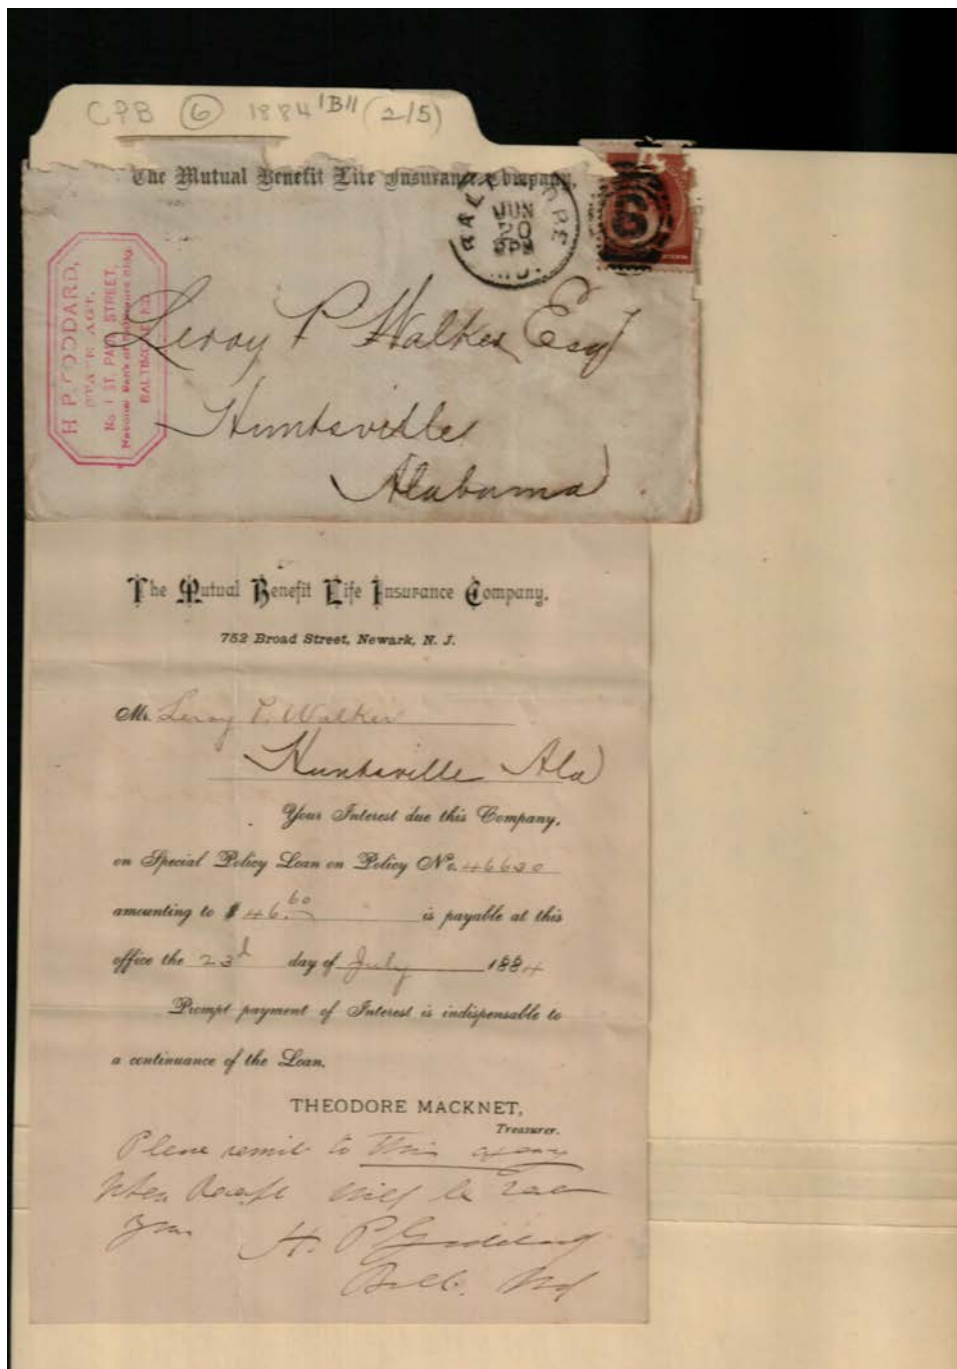 CPB 6 1884 "B" (2/5)
The Mutual Benefit Life Insurance Company.
BALTIMORE
JUN
20
MD.
6
H. P. GODDARD,
STATE AGT.
No. 1 ST. PAUL STREET,
National Bank of Baltimore Bldg.
BALTIMORE, MD.
Leroy P Walker Esq
Huntsville
Alabama
The Mutual Benefit Life Insurance Company,
752 Broad Street, Newark, N. J.
Mr. Leroy P. Walker
Huntsville Ala
Your Interest due this Company,
on Special Policy Loan on Policy No. 46620
amounting to $ 46.60 is payable at this
office the 23d day of July 1884
Prompt payment of Interest is indispensable to
a continuance of the Loan.
THEODORE MACKNET,
Treasurer.
Please remit to this agency
when receipt will be
you H. P. Goddard
Balto. Md